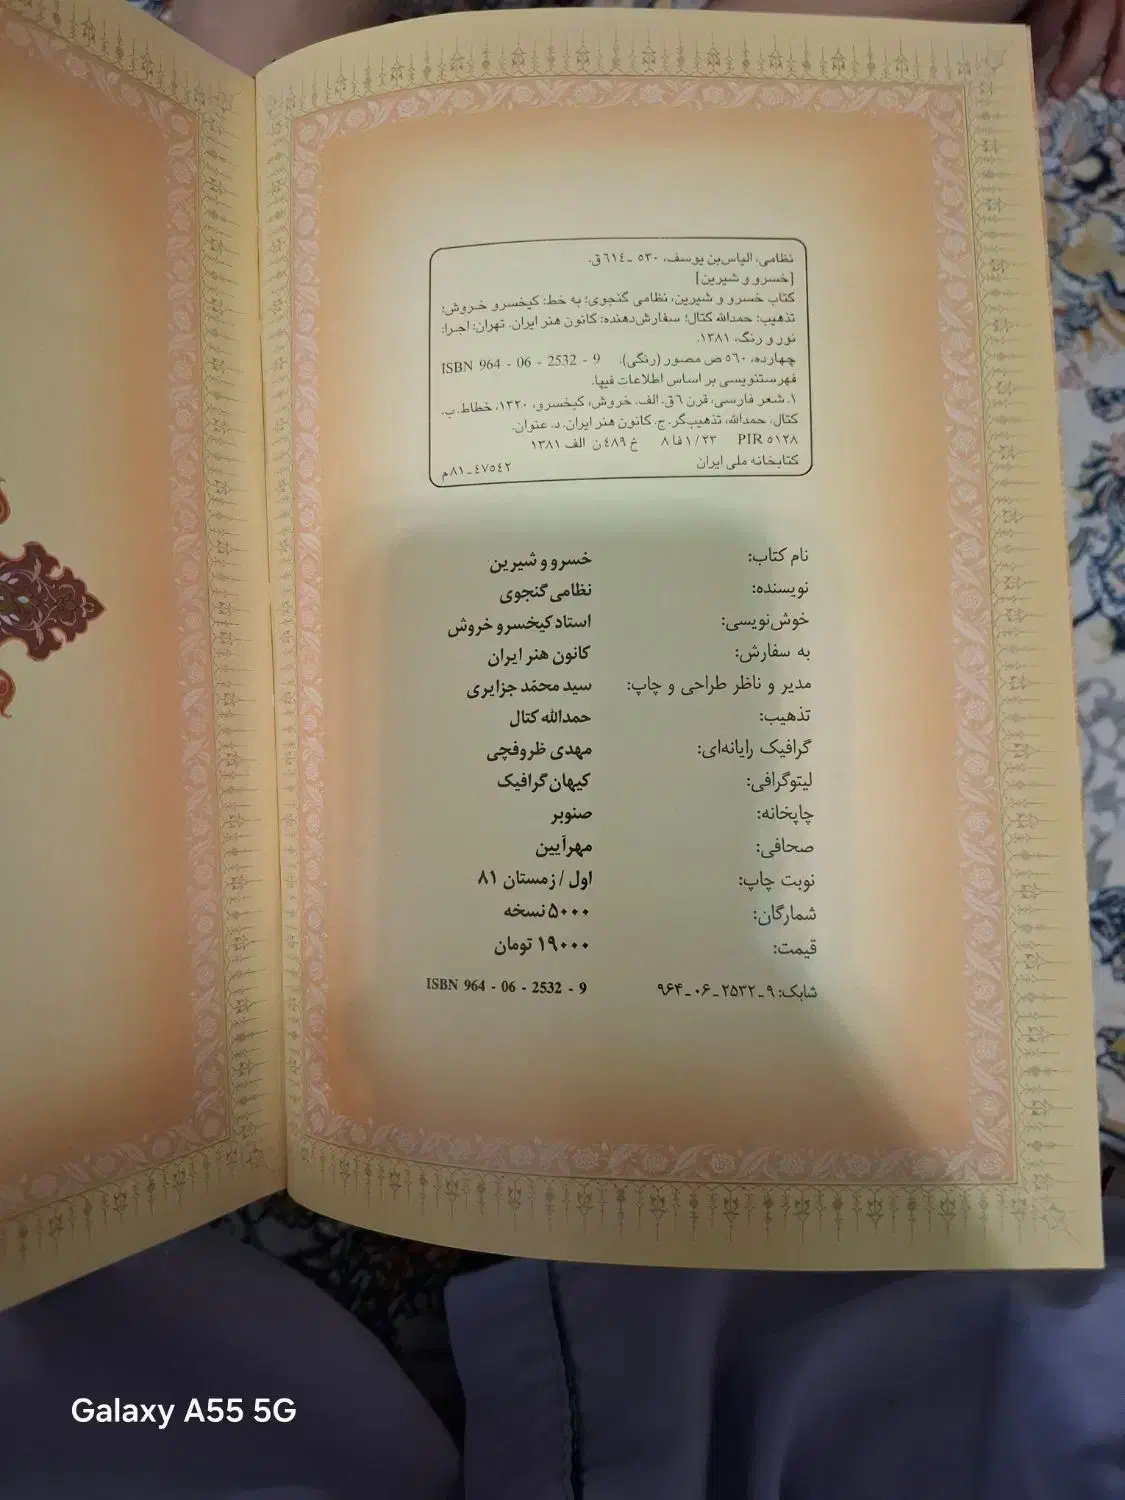 نظامی، الیاس‌بن یوسف، ۵۳۰ ـ ۶۱۴ق.
[خسرو و شیرین]
کتاب خسرو و شیرین، نظامی گنجوی؛ به خط: کیخسرو خروش؛
تذهیب: حمدالله کتال؛ سفارش‌دهنده: کانون هنر ایران. تهران: اجرا:
نور و رنگ، ۱۳۸۱.
چهارده، ۵۶۰ ص مصور (رنگی). ISBN 964 - 06 - 2532 - 9
فهرستنویسی بر اساس اطلاعات فیپا.
۱. شعر فارسی، قرن ۶ق. الف. خروش، کیخسرو، ۱۳۲۰، خطاط. ب.
کتال، حمدالله، تذهیب‌گر. ج. کانون هنر ایران. د. عنوان.
PIR ۵۱۲۸ ۸فا۱/۲۳ خ ۴۸۹ن الف ۱۳۸۱
کتابخانه ملی ایران ۴۷۵۴۲ـ۸۱م
نام کتاب: خسرو و شیرین
نویسنده: نظامی گنجوی
خوش‌نویسی: استاد کیخسرو خروش
به سفارش: کانون هنر ایران
مدیر و ناظر طراحی و چاپ: سید محمّد جزایری
تذهیب: حمدالله کتال
گرافیک رایانه‌ای: مهدی ظروفچی
لیتوگرافی: کیهان گرافیک
چاپخانه: صنوبر
صحافی: مهرآیین
نوبت چاپ: اول / زمستان ۸۱
شمارگان: ۵۰۰۰ نسخه
قیمت: ۱۹۰۰۰ تومان
شابک: ۹ ـ ۲۵۳۲ ـ ۰۶ ـ ۹۶۴ ISBN 964 - 06 - 2532 - 9
Galaxy A55 5G